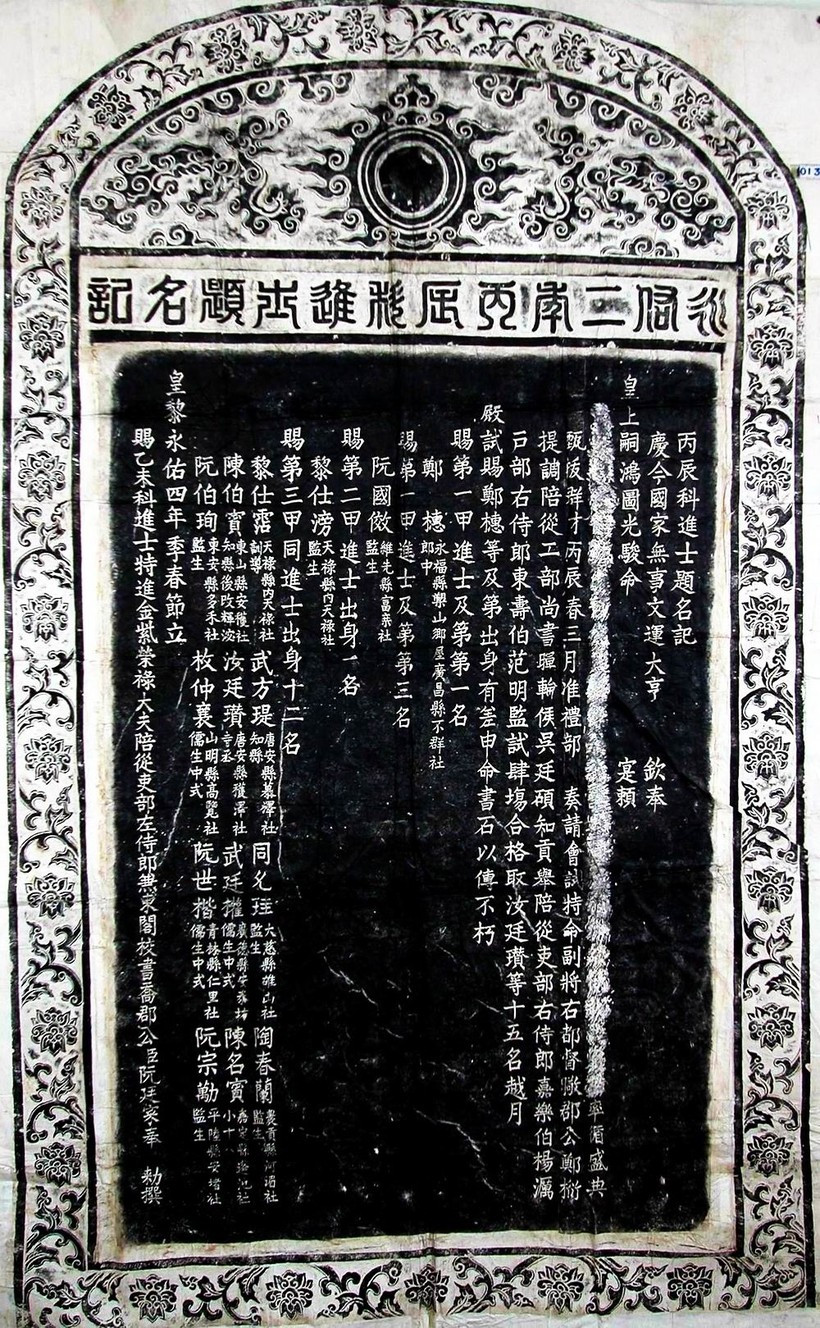 永佑二年丙辰科進士題名記
丙辰科進士題名記
慶今國家無事文運大亨 欽奉
皇上嗣鴻圖光駿命 寔賴
率循盛典
甄拔群才丙辰春三月准禮部 奏請會試特命副將右都督 郡公鄭
提調陪從工部尚書暉輪侯吳廷碩知貢舉陪從吏部右侍郎嘉樂伯楊濿
戶部右侍郎東壽伯范明監試肆塲合格取汝廷瓚等十五名越月
殿試賜鄭橞等及第出身有差申命書石以傳不朽
賜第一甲進士及第第一名
鄭橞永福縣樂山鄉居廣昌縣不群社郎中
賜第一甲進士及第第三名
阮國 監生
賜第二甲進士出身一名
黎仕滂天祿縣內天祿社監生
賜第三甲同進士出身十二名
黎仕 天祿縣內天祿社訓導 武方 唐安縣慕澤社知縣 大慈縣雄山社監生 陶春蘭 社監生
陳伯賓東山縣安獲社知縣後改輝 汝廷瓚唐安縣穫澤社寺丞 武廷 廣德縣安 坊儒生中式 陳名賓
阮伯珣東安縣多禾社監生 枚仲 山明縣高 社儒生中式 阮世楷青林縣仁里社儒生中式 阮宗 平陸縣安 社監生
皇黎永佑四年季春節立
賜乙未科進士特進金紫榮祿大夫陪從吏部左侍郎兼東閣校書喬郡公臣阮廷 奉 勅撰
013